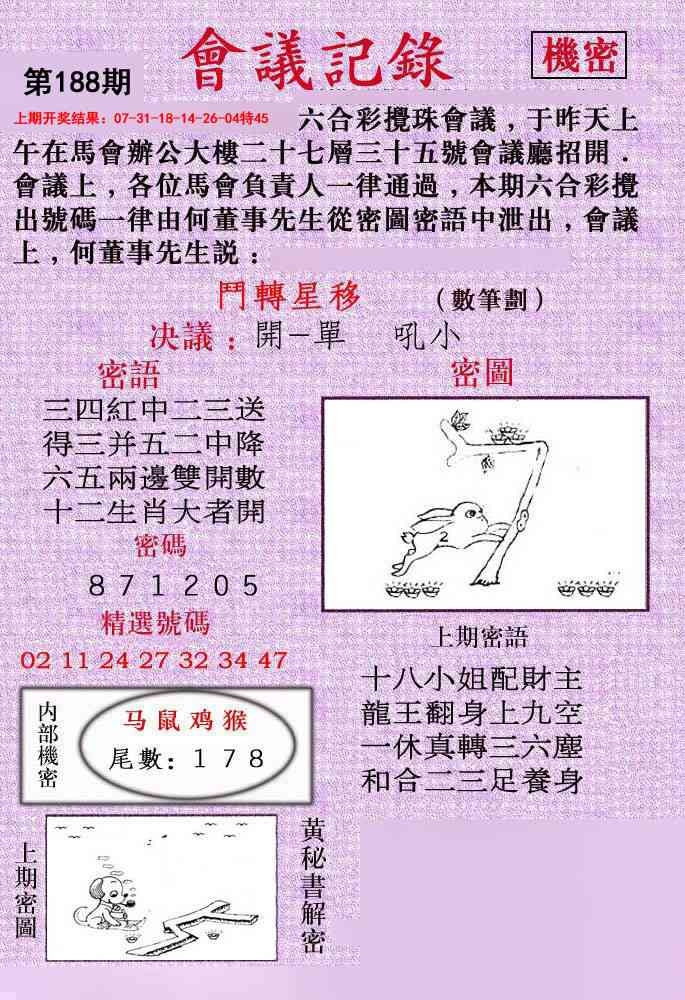 會議記錄
機密
第188期
上期开奖结果：07-31-18-14-26-04特45
六合彩攪珠會議，于昨天上
午在馬會辦公大樓二十七層三十五號會議廳招開．
會議上，各位馬會負責人一律通過，本期六合彩攪
出號碼一律由何董事先生從密圖密語中泄出，會議
上，何董事先生説：
鬥轉星移 （數筆劃）
决議：開－單 吼小
密語
三四紅中二三送
得三并五二中降
六五兩邊雙開數
十二生肖大者開
密碼
871205
精選號碼
02 11 24 27 32 34 47
密圖
2
上期密語
十八小姐配財主
龍王翻身上九空
一休真轉三六塵
和合二三足養身
内部機密
马鼠鸡猴
尾數：178
上期密圖
黄秘書解密